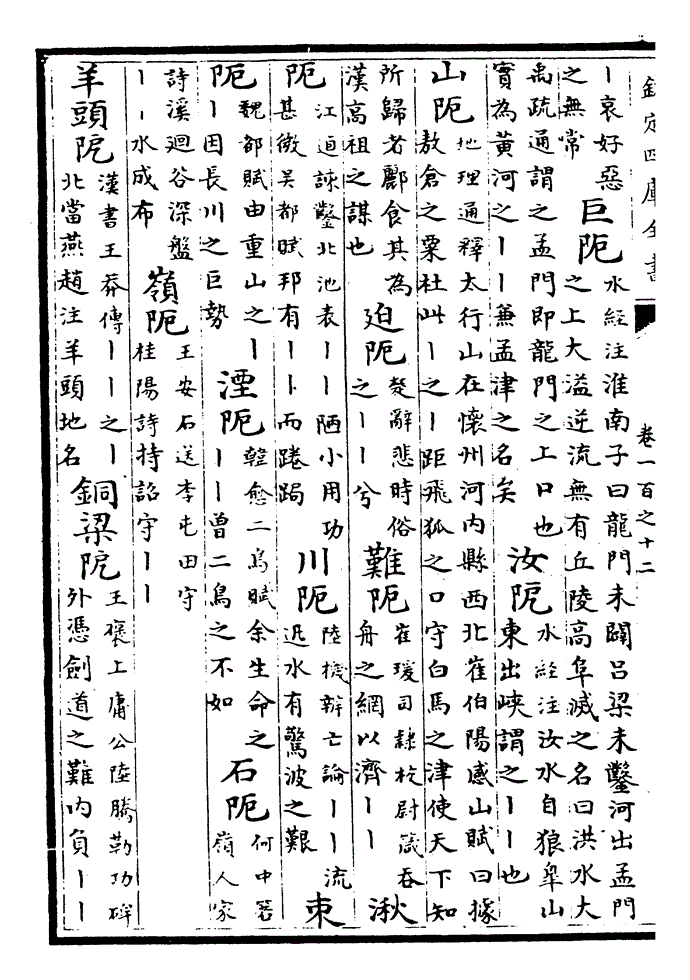 欽定四庫全書 卷一百之十二
丨哀好惡
之無常
巨阨
水經注淮南子曰龍門未闢吕梁未鑿河出孟門
之上大溢逆流無有丘陵高阜滅之名曰洪水大
禹疏通謂之孟門即龍門之上口也
實為黄河之丨丨兼孟津之名矣
汝阨
水經注汝水自狼臯山
東出峽謂之丨丨也
山阨
地理通釋太行山在懷州河内縣西北崔伯陽感山賦曰據
敖倉之粟杜此丨之丨距飛狐之口守白馬之津使天下知
所歸者酈食其為
漢高祖之謀也
迫阨
楚辭悲時俗
之丨丨兮
難阨
崔瑗司隸校尉箴吞
舟之網以濟丨丨
湫
阨
江逌諫鑿北池表丨丨陋小用功
甚微吴都賦邦有丨丨而踡跼
川阨
陸機辨亡論丨丨流
迅水有驚波之艱
束
阨
魏都賦由重山之丨
丨因長川之巨勢
湮阨
韓愈二鳥賦余生命之
丨丨曽二鳥之不如
石阨
何中箬
嶺人家
詩溪廻谷深盤
丨丨水成布
嶺阨
王安石送李屯田守
桂陽詩持詔守丨丨
羊頭阨
漢書王莽傳丨丨之丨
北當燕趙注羊頭地名
銅梁阨
王襃上庸公陸騰勒功碑
外憑劍道之難内負丨丨